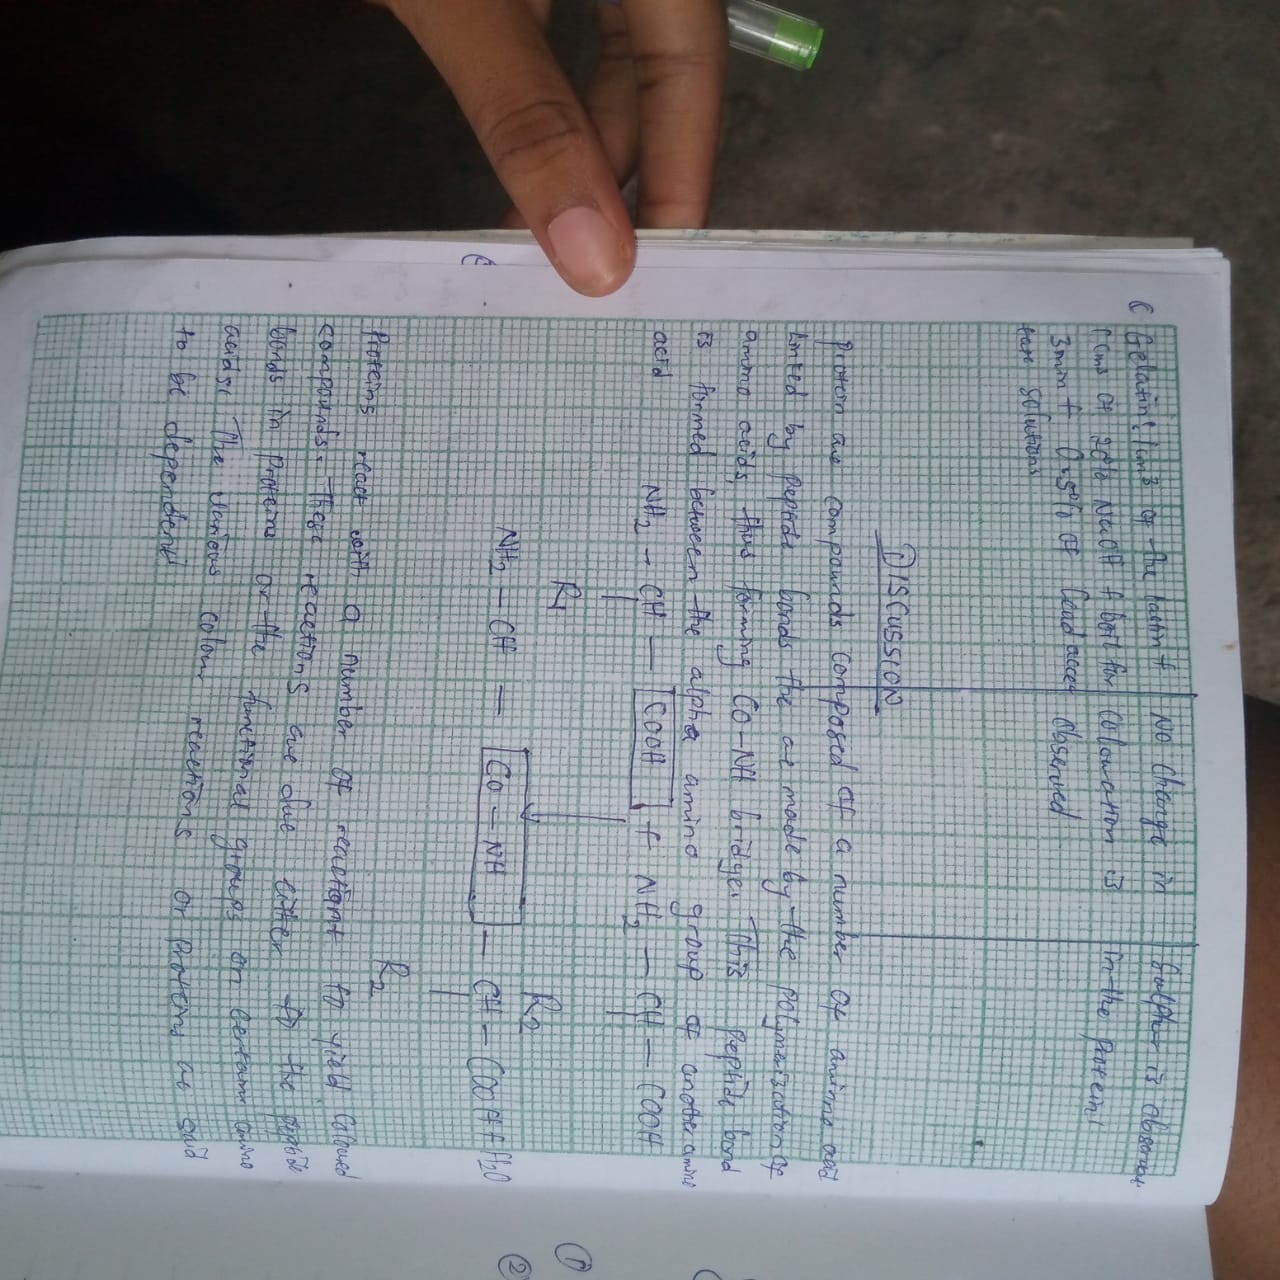 C Gelatin: 1cm³ of the lactin + No Change in Sulphur is observed
1cm³ of 20% NaOH + boil for colouration is in the protein
3min + 0.5% of lead acce observed
tate solutions
DISCUSSION
Protein are compounds composed of a number of amino acid
linked by peptide bonds the ae made by the polymerization of
amino acids, thus forming CO-NH bridge. This peptide bond
is formed between the alpha amino group of another amino
acid NH₂ - CH - COOH + NH₂ - CH - COOH
R₁
R₂
NH₂ - CH - CO - NH - CH - COOH + H₂O
R₂
Proteins react with a number of reactiant to yield coloured
compounds. These reactions are due either to the peptide
bonds in proteins or the functional groups on certain amino
acids. The various colour reactions or proteins ae said
to be dependent
1
2